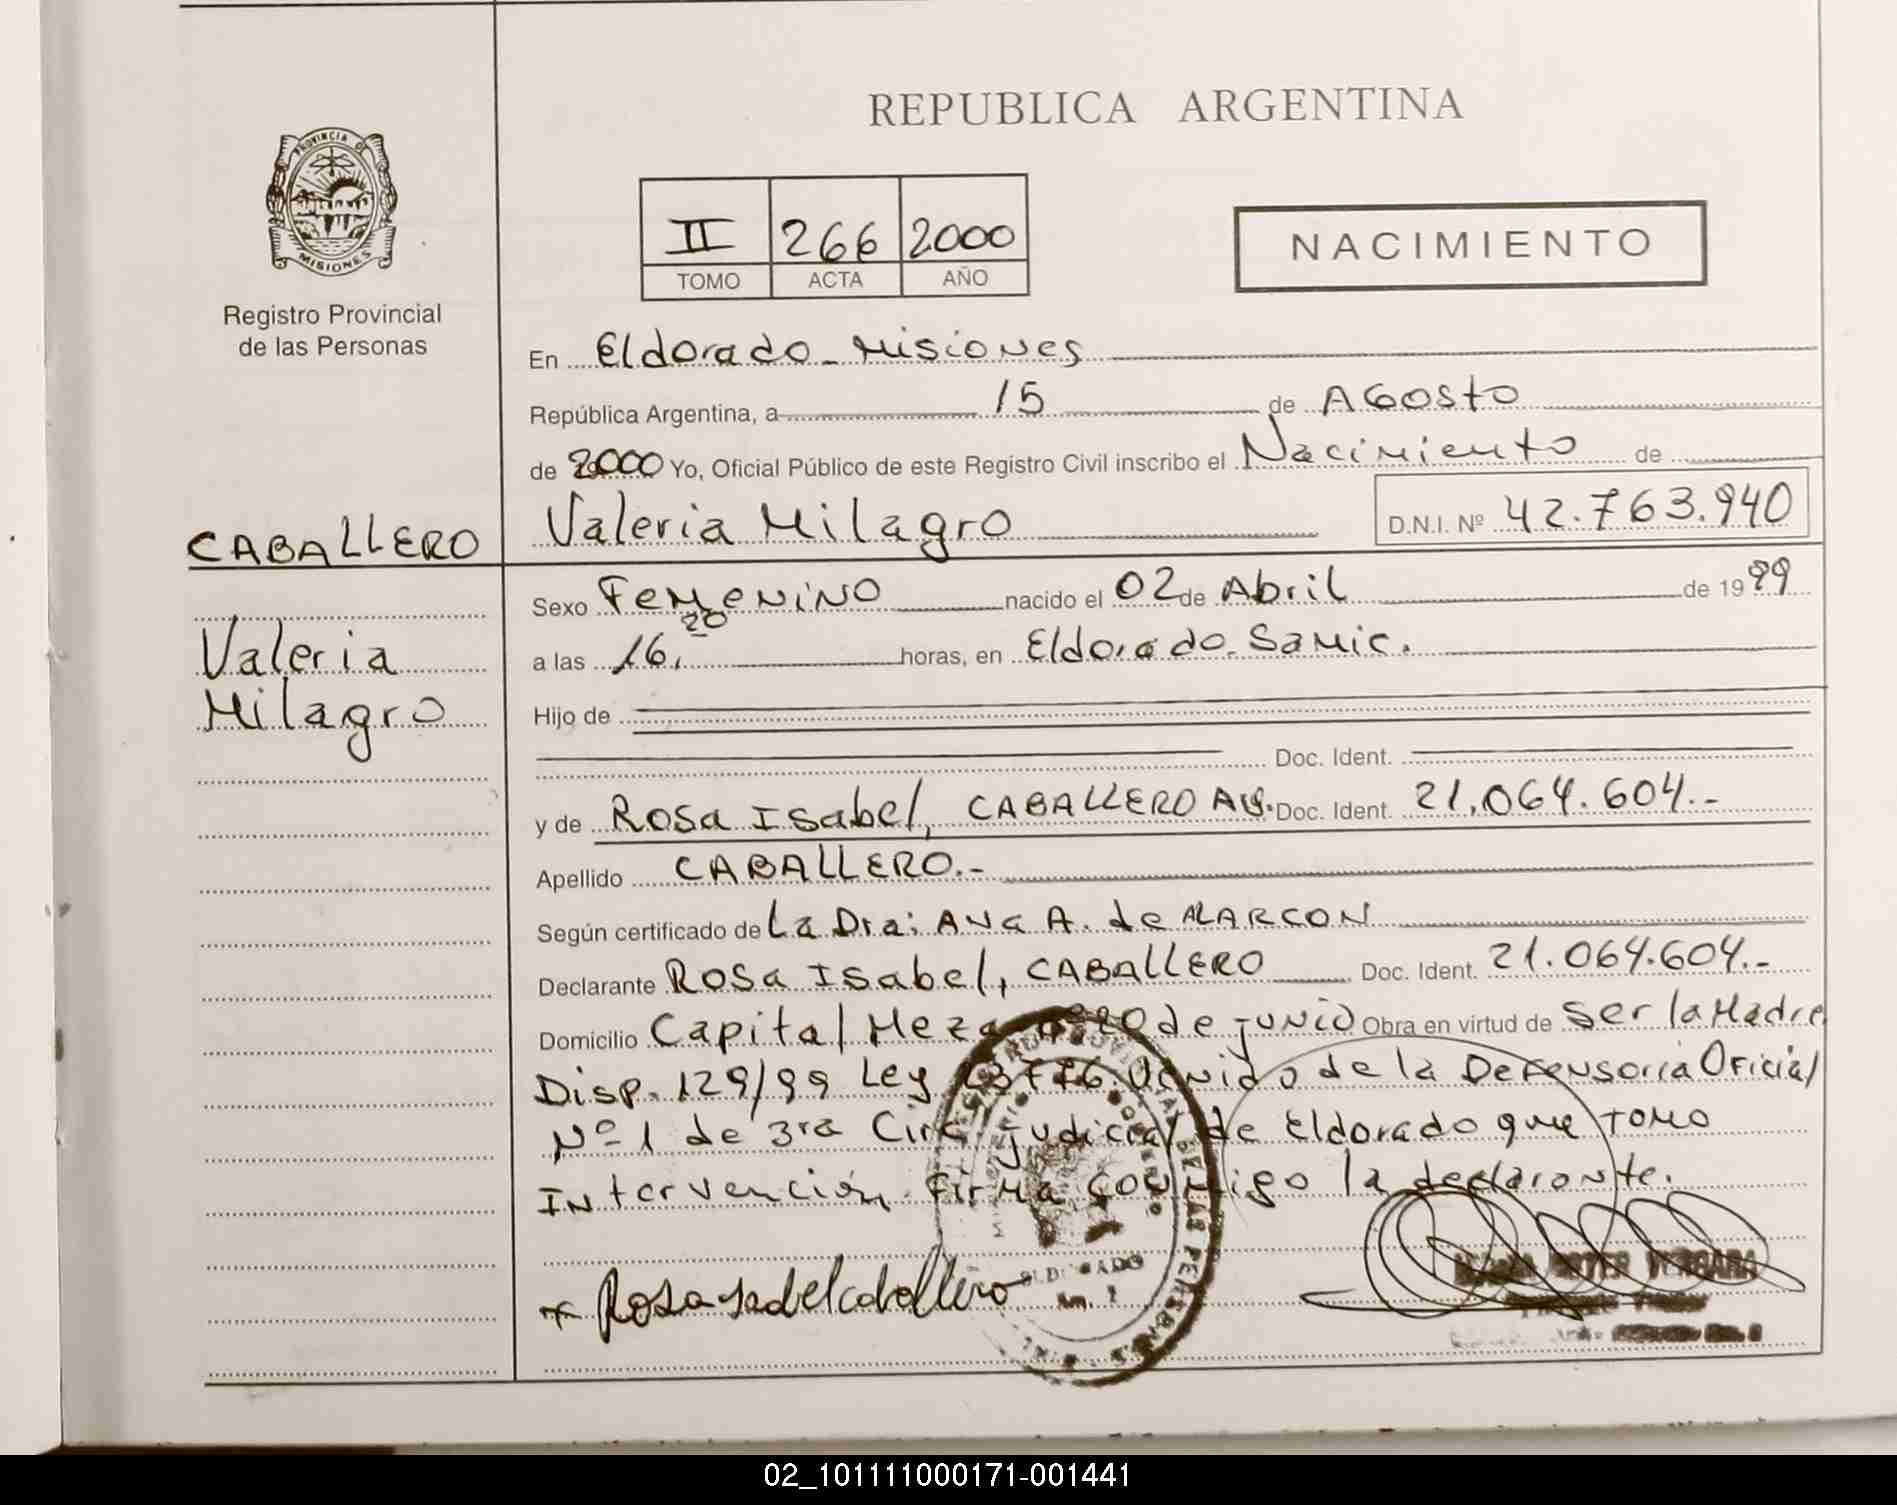 REPUBLICA ARGENTINA
PROVINCIA DE
MISIONES
Registro Provincial
de las Personas
II 266 2000
TOMO ACTA AÑO
NACIMIENTO
En Eldorado - Misiones
República Argentina, a 15 de AGOSTO
de 2000 Yo, Oficial Público de este Registro Civil inscribo el Nacimiento de
CABALLERO
Valeria Milagro D.N.I. Nº 42.763.940
Valeria
Milagro
Sexo Femenino nacido el 02 de Abril de 1999
a las 16,20 horas, en Eldorado Samic.
Hijo de
Doc. Ident.
y de Rosa Isabel, CABALLERO Doc. Ident. 21.064.604.-
Apellido CABALLERO.-
Según certificado de La Dra: Ana A. de ALARCON
Declarante Rosa Isabel, CABALLERO Doc. Ident. 21.064.604.-
Domicilio Capital Meza 20 de junio Obra en virtud de ser la Madre
Disp. 129/99 Ley 13776 de la Defensoria Oficial
Nº 1 de 3ra Circ. judicial de Eldorado que tomo
Intervención firma conmigo la declarante.
Rosa Isabel caballero
ELDORADO
02_101111000171-001441